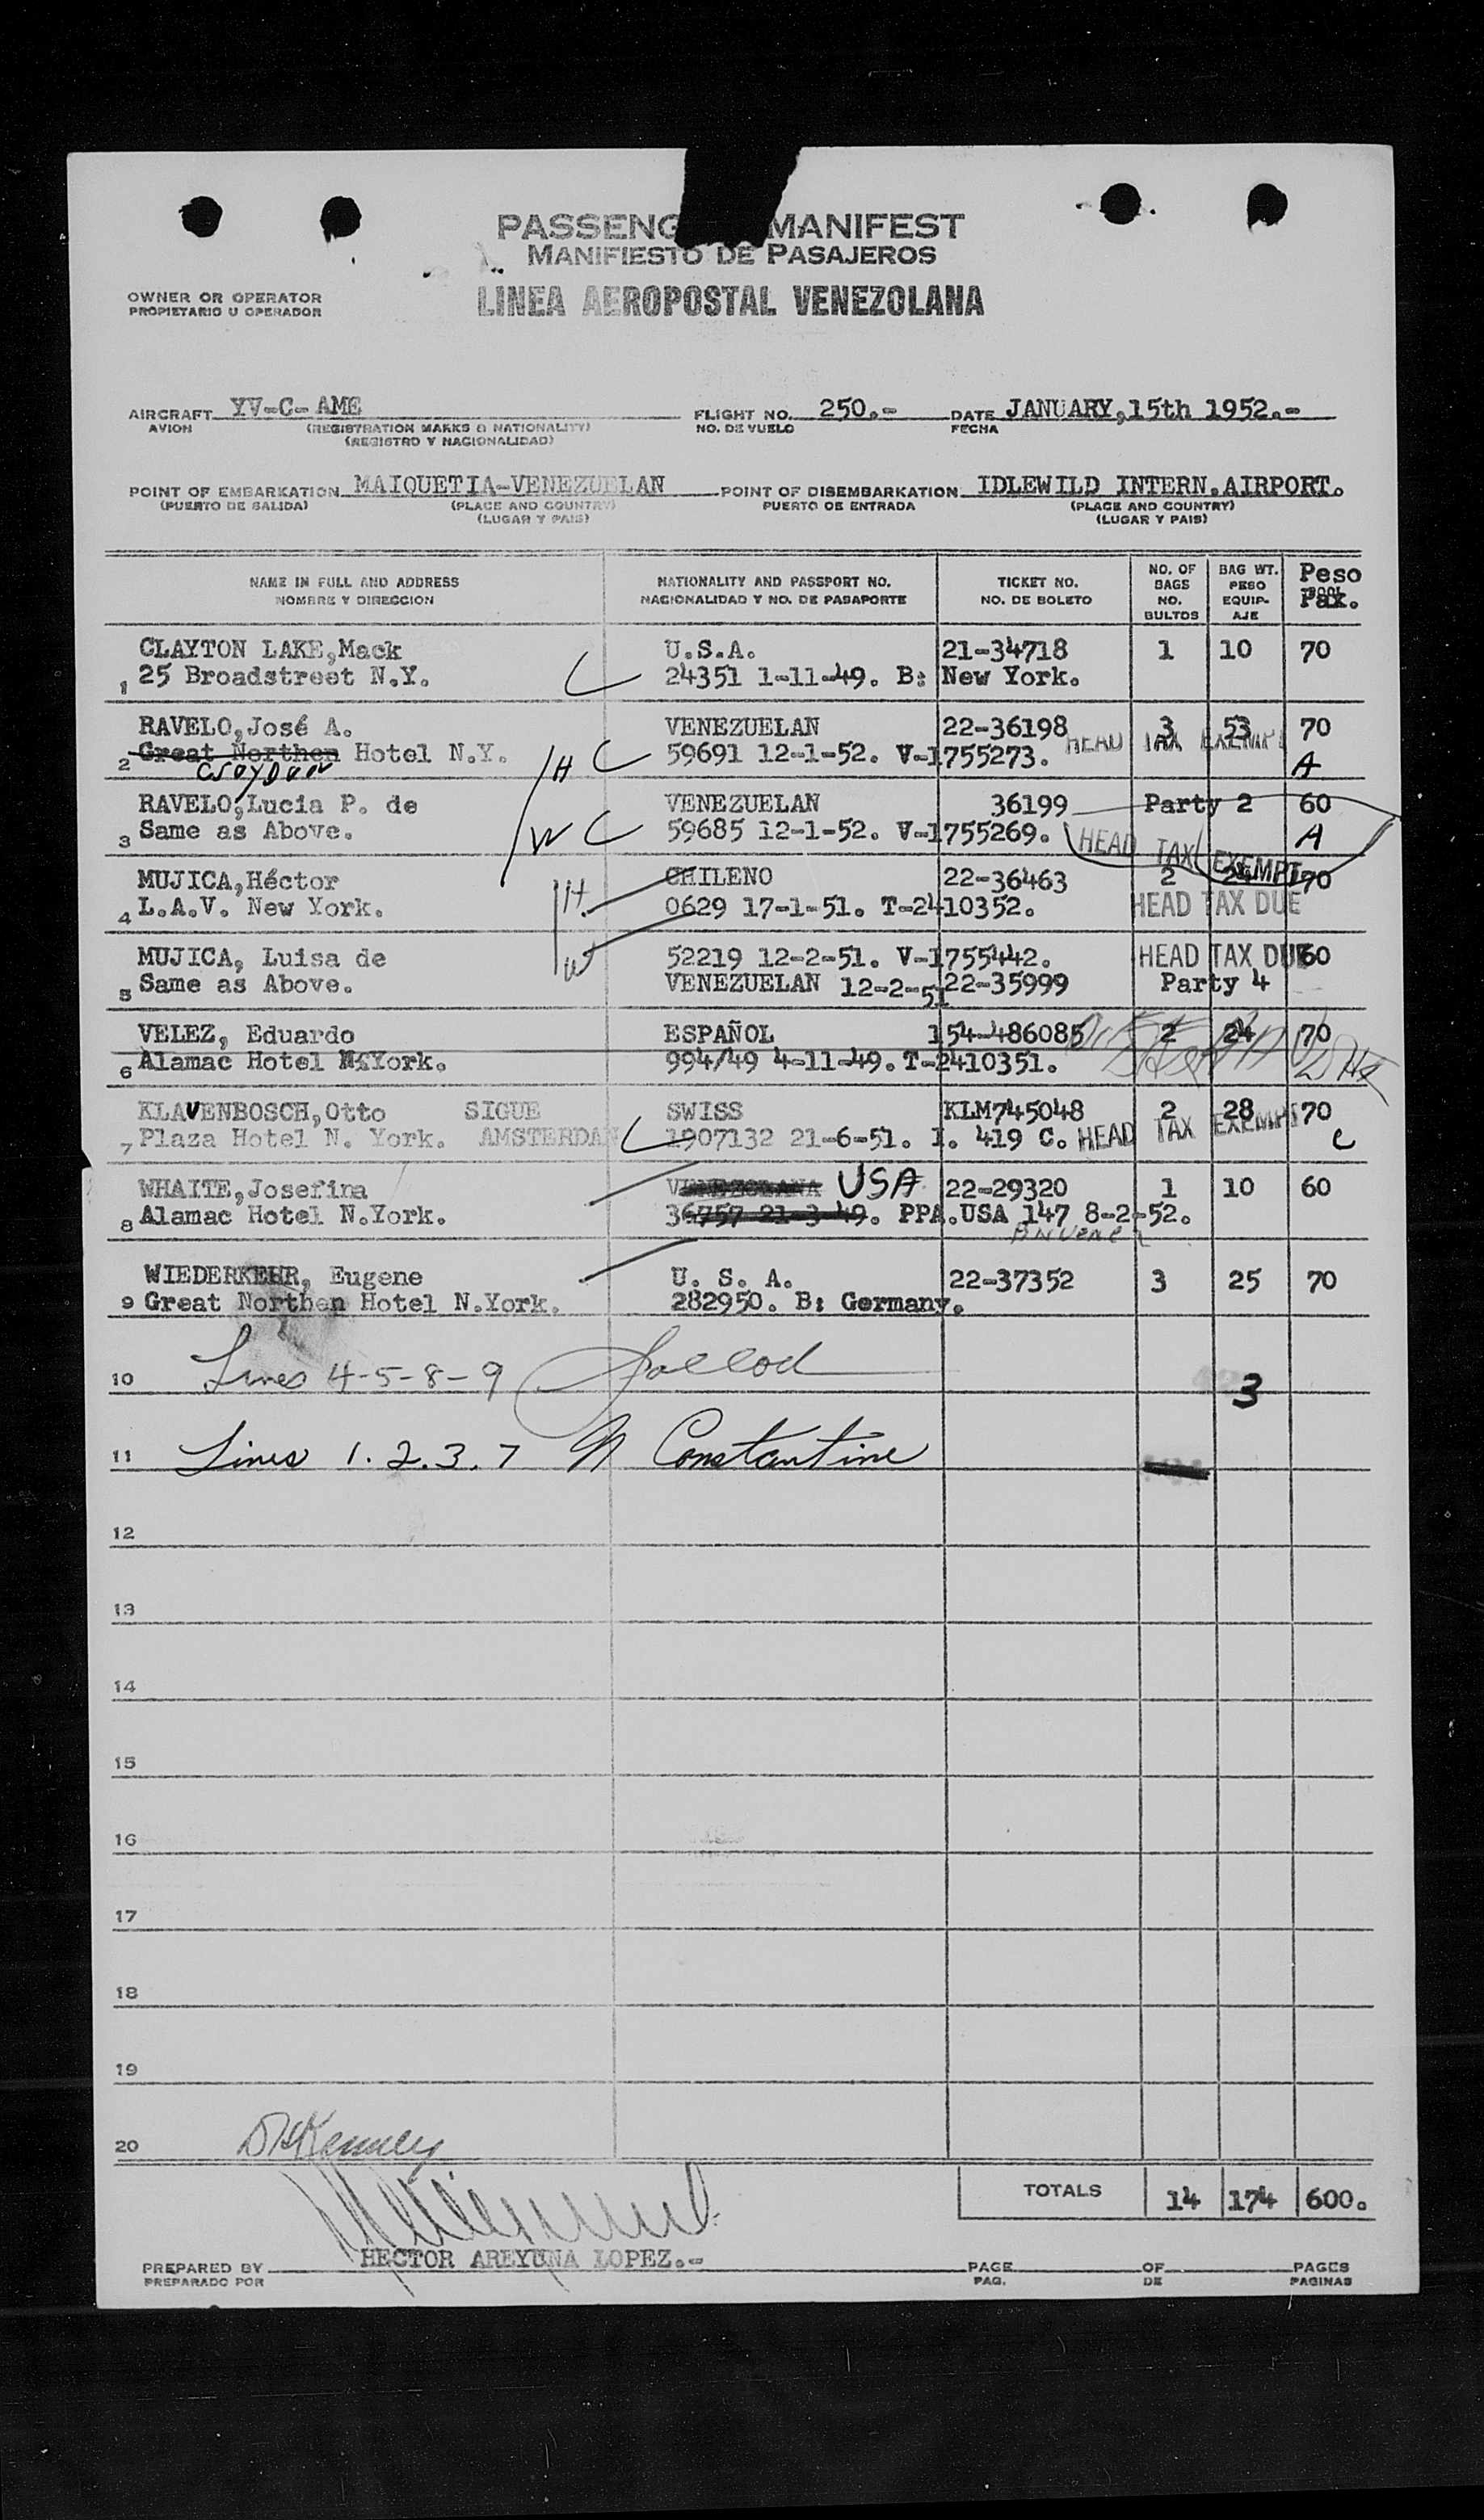 PASSENG MANIFEST
MANIFIESTO DE PASAJEROS
OWNER OR OPERATOR
PROPIETARIO U OPERADOR
LINEA AEROPOSTAL VENEZOLANA
AIRCRAFT YV-C-AME FLIGHT NO. 250.- DATE JANUARY,15th 1952.-
AVION (REGISTRATION MARKS & NATIONALITY) NO. DE VUELO FECHA
(REGISTRO Y NACIONALIDAD)
POINT OF EMBARKATION MAIQUETIA-VENEZUELAN POINT OF DISEMBARKATION IDLEWILD INTERN.AIRPORT.
(PUERTO DE SALIDA) (PLACE AND COUNTRY) PUERTO DE ENTRADA (PLACE AND COUNTRY)
(LUGAR Y PAIS) (LUGAR Y PAIS)
NAME IN FULL AND ADDRESS NATIONALITY AND PASSPORT NO. TICKET NO. NO. OF BAGS BAG WT. Peso
NOMBRE Y DIRECCION NACIONALIDAD Y NO. DE PASAPORTE NO. DE BOLETO NO. BULTOS PESO EQUIP-AJE Pax.
CLAYTON LAKE,Mack U.S.A. 21-34718 1 10 70
1 25 Broadstreet N.Y. C 24351 1-11-49. B: New York.
RAVELO,José A. VENEZUELAN 22-36198 3 53 70
2 Great Northen Hotel N.Y. H C 59691 12-1-52. V-1755273. HEAD TAX EXEMPT A
Croydon
RAVELO,Lucia P. de VENEZUELAN 36199 Party 2 60
3 Same as Above. W C 59685 12-1-52. V-1755269. HEAD TAX EXEMPT A
MUJICA,Héctor H. CHILENO 22-36463 2 24 70
4 L.A.V. New York. 0629 17-1-51. T-2410352. HEAD TAX DUE
MUJICA, Luisa de W 52219 12-2-51. V-1755442. HEAD TAX DUE 60
5 Same as Above. VENEZUELAN 12-2-51 22-35999 Party 4
VELEZ, Eduardo ESPAÑOL 154-486085 2 24 70
6 Alamac Hotel N.York. 994/49 4-11-49. T-2410351.
KLAVENBOSCH,Otto SIGUE SWISS KLM745048 2 28 70
7 Plaza Hotel N. York. AMSTERDAN C 1907132 21-6-51. I. 419 C. HEAD TAX EXEMPT C
WHAITE,Josefina VENEZOLANA USA 22-29320 1 10 60
8 Alamac Hotel N.York. 36757 21-3-49. PPA.USA 147 8-2-52.
WIEDERKEHR, Eugene U. S. A. 22-37352 3 25 70
9 Great Northen Hotel N.York. 282950. B: Germany.
10 Lines 4-5-8-9 3
11 Lines 1.2.3.7 N Constantine
12
13
14
15
16
17
18
19
20
TOTALS 14 174 600.
PREPARED BY HECTOR AREYUNA LOPEZ.- PAGE OF PAGES
PREPARADO POR PAG. DE PAGINAS